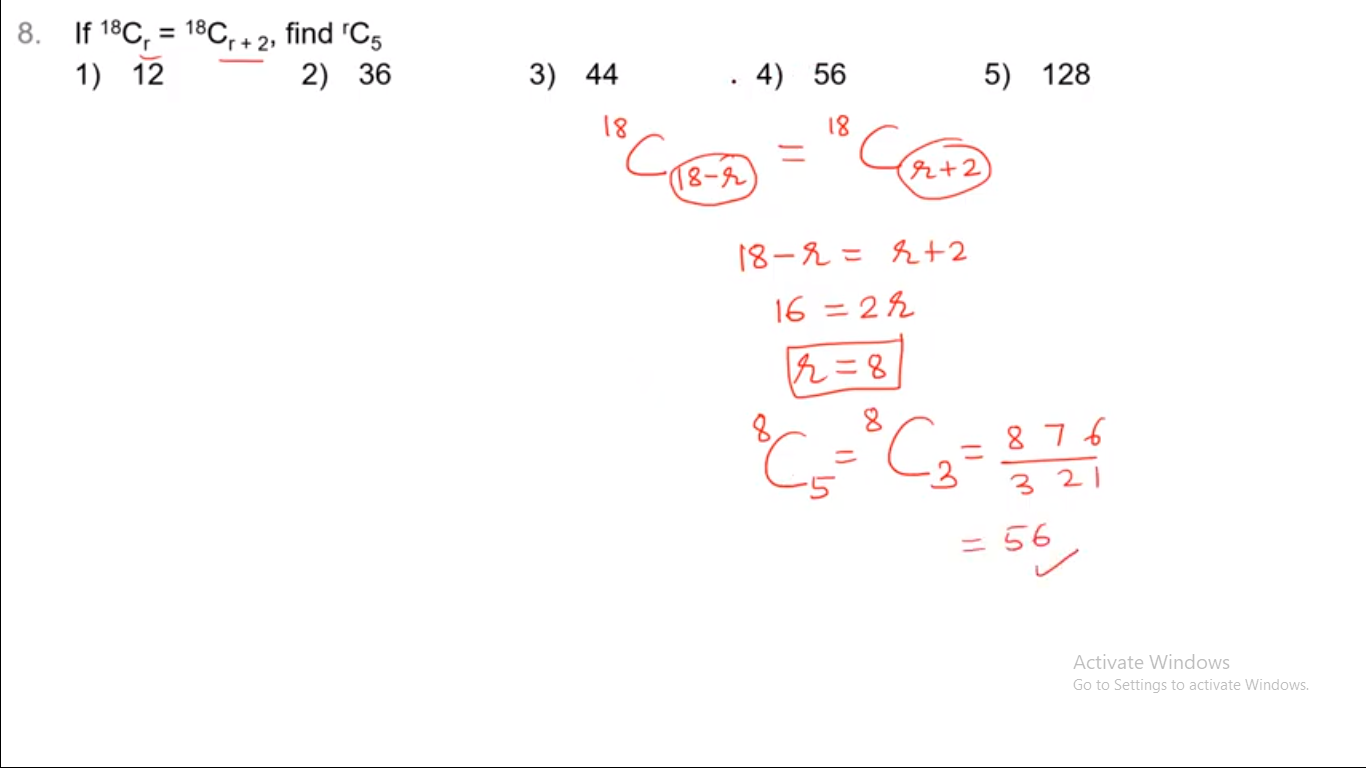 8. If ¹⁸Cᵣ = ¹⁸Cᵣ ₊ ₂, find ʳC₅
1) 12 2) 36 3) 44 . 4) 56 5) 128
¹⁸C₁₈₋ᵣ = ¹⁸Cᵣ₊₂
18-r = r+2
16 = 2r
r = 8
⁸C₅ = ⁸C₃ = 8 7 6 / 3 2 1
= 56
Activate Windows
Go to Settings to activate Windows.